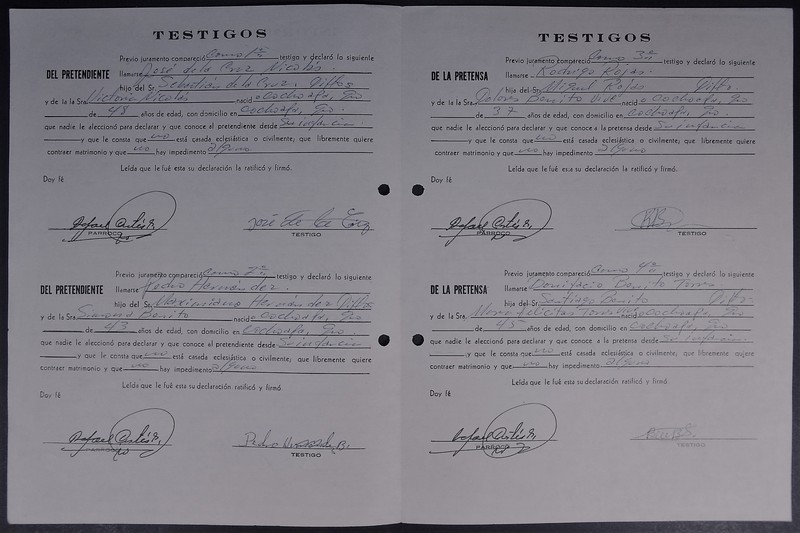 TESTIGOS
Previo juramento compareció Como 1er testigo y declaró lo siguiente
DEL PRETENDIENTE llamarse José de la Cruz Nicolás.
hijo del Sr. Sebastián de la Cruz, Diftos
y de la Sra. Victoria Nicolás nacid o Cochoapa, Gro
de 48 años de edad, con domicilio en Cochoapa, Gro.
que nadie le aleccionó para declarar y que conoce al pretendiente desde Su infancia
y que le consta que no está casada eclesiástica o civilmente; que libremente quiere
contraer matrimonio y que no hay impedimento alguno
Leída que le fué esta su declaración la ratificó y firmó.
Doy fé
Rafael
José de la Cruz
PARROCO
TESTIGO
Previo juramento compareció Como 2o testigo y declaró lo siguiente
DEL PRETENDIENTE llamarse Pedro Hernández.
hijo del Sr. Maximiano Hernández Diftos
y de la Sra. Simona Benito nacid o Cochoapa, Gro
de 43 años de edad, con domicilio en Cochoapa, Gro.
que nadie le aleccionó para declarar y que conoce al pretendiente desde Su infancia
y que le consta que no está casada eclesiástica o civilmente; que libremente quiere
contraer matrimonio y que no hay impedimento alguno
Leída que le fué esta su declaración ratificó y firmó.
Doy fé
Rafael
Pedro
PARROCO
TESTIGO
TESTIGOS
Previo juramento compareció Como 3er testigo y declaró lo siguiente
DE LA PRETENSA llamarse Rodrigo Rojas.
hijo del Sr. Miguel Rojas Diftos.
y de la Sra. Dolores Benito nacid o Cochoapa, Gro
de 37 años de edad, con domicilio en Cochoapa, Gro.
que nadie le aleccionó para declarar y que conoce a la pretensa desde Su infancia
y que le consta que no está casada eclesiástica o civilmente; que libremente quiere
contraer matrimonio y que no hay impedimento alguno
Leída que le fué esta su declaración la ratificó y firmó.
Doy fé
Rafael
PARROCO
TESTIGO
Previo juramento compareció Como 4o testigo y declaró lo siguiente
DE LA PRETENSA llamarse Bonifacio Benito Torres
hijo del Sr. Santiago Benito Diftos.
y de la Sra. María Felicitas nacid o Cochoapa, Gro
de 45 años de edad, con domicilio en Cochoapa, Gro
que nadie le aleccionó para declarar y que conoce a la pretensa desde Su infancia
y que le consta que no está casada eclesiástica o civilmente; que libremente quiere
contraer matrimonio y que no hay impedimento alguno
Leída que le fué esta su declaración la ratificó y firmó.
Doy fé
Rafael
PARROCO
TESTIGO